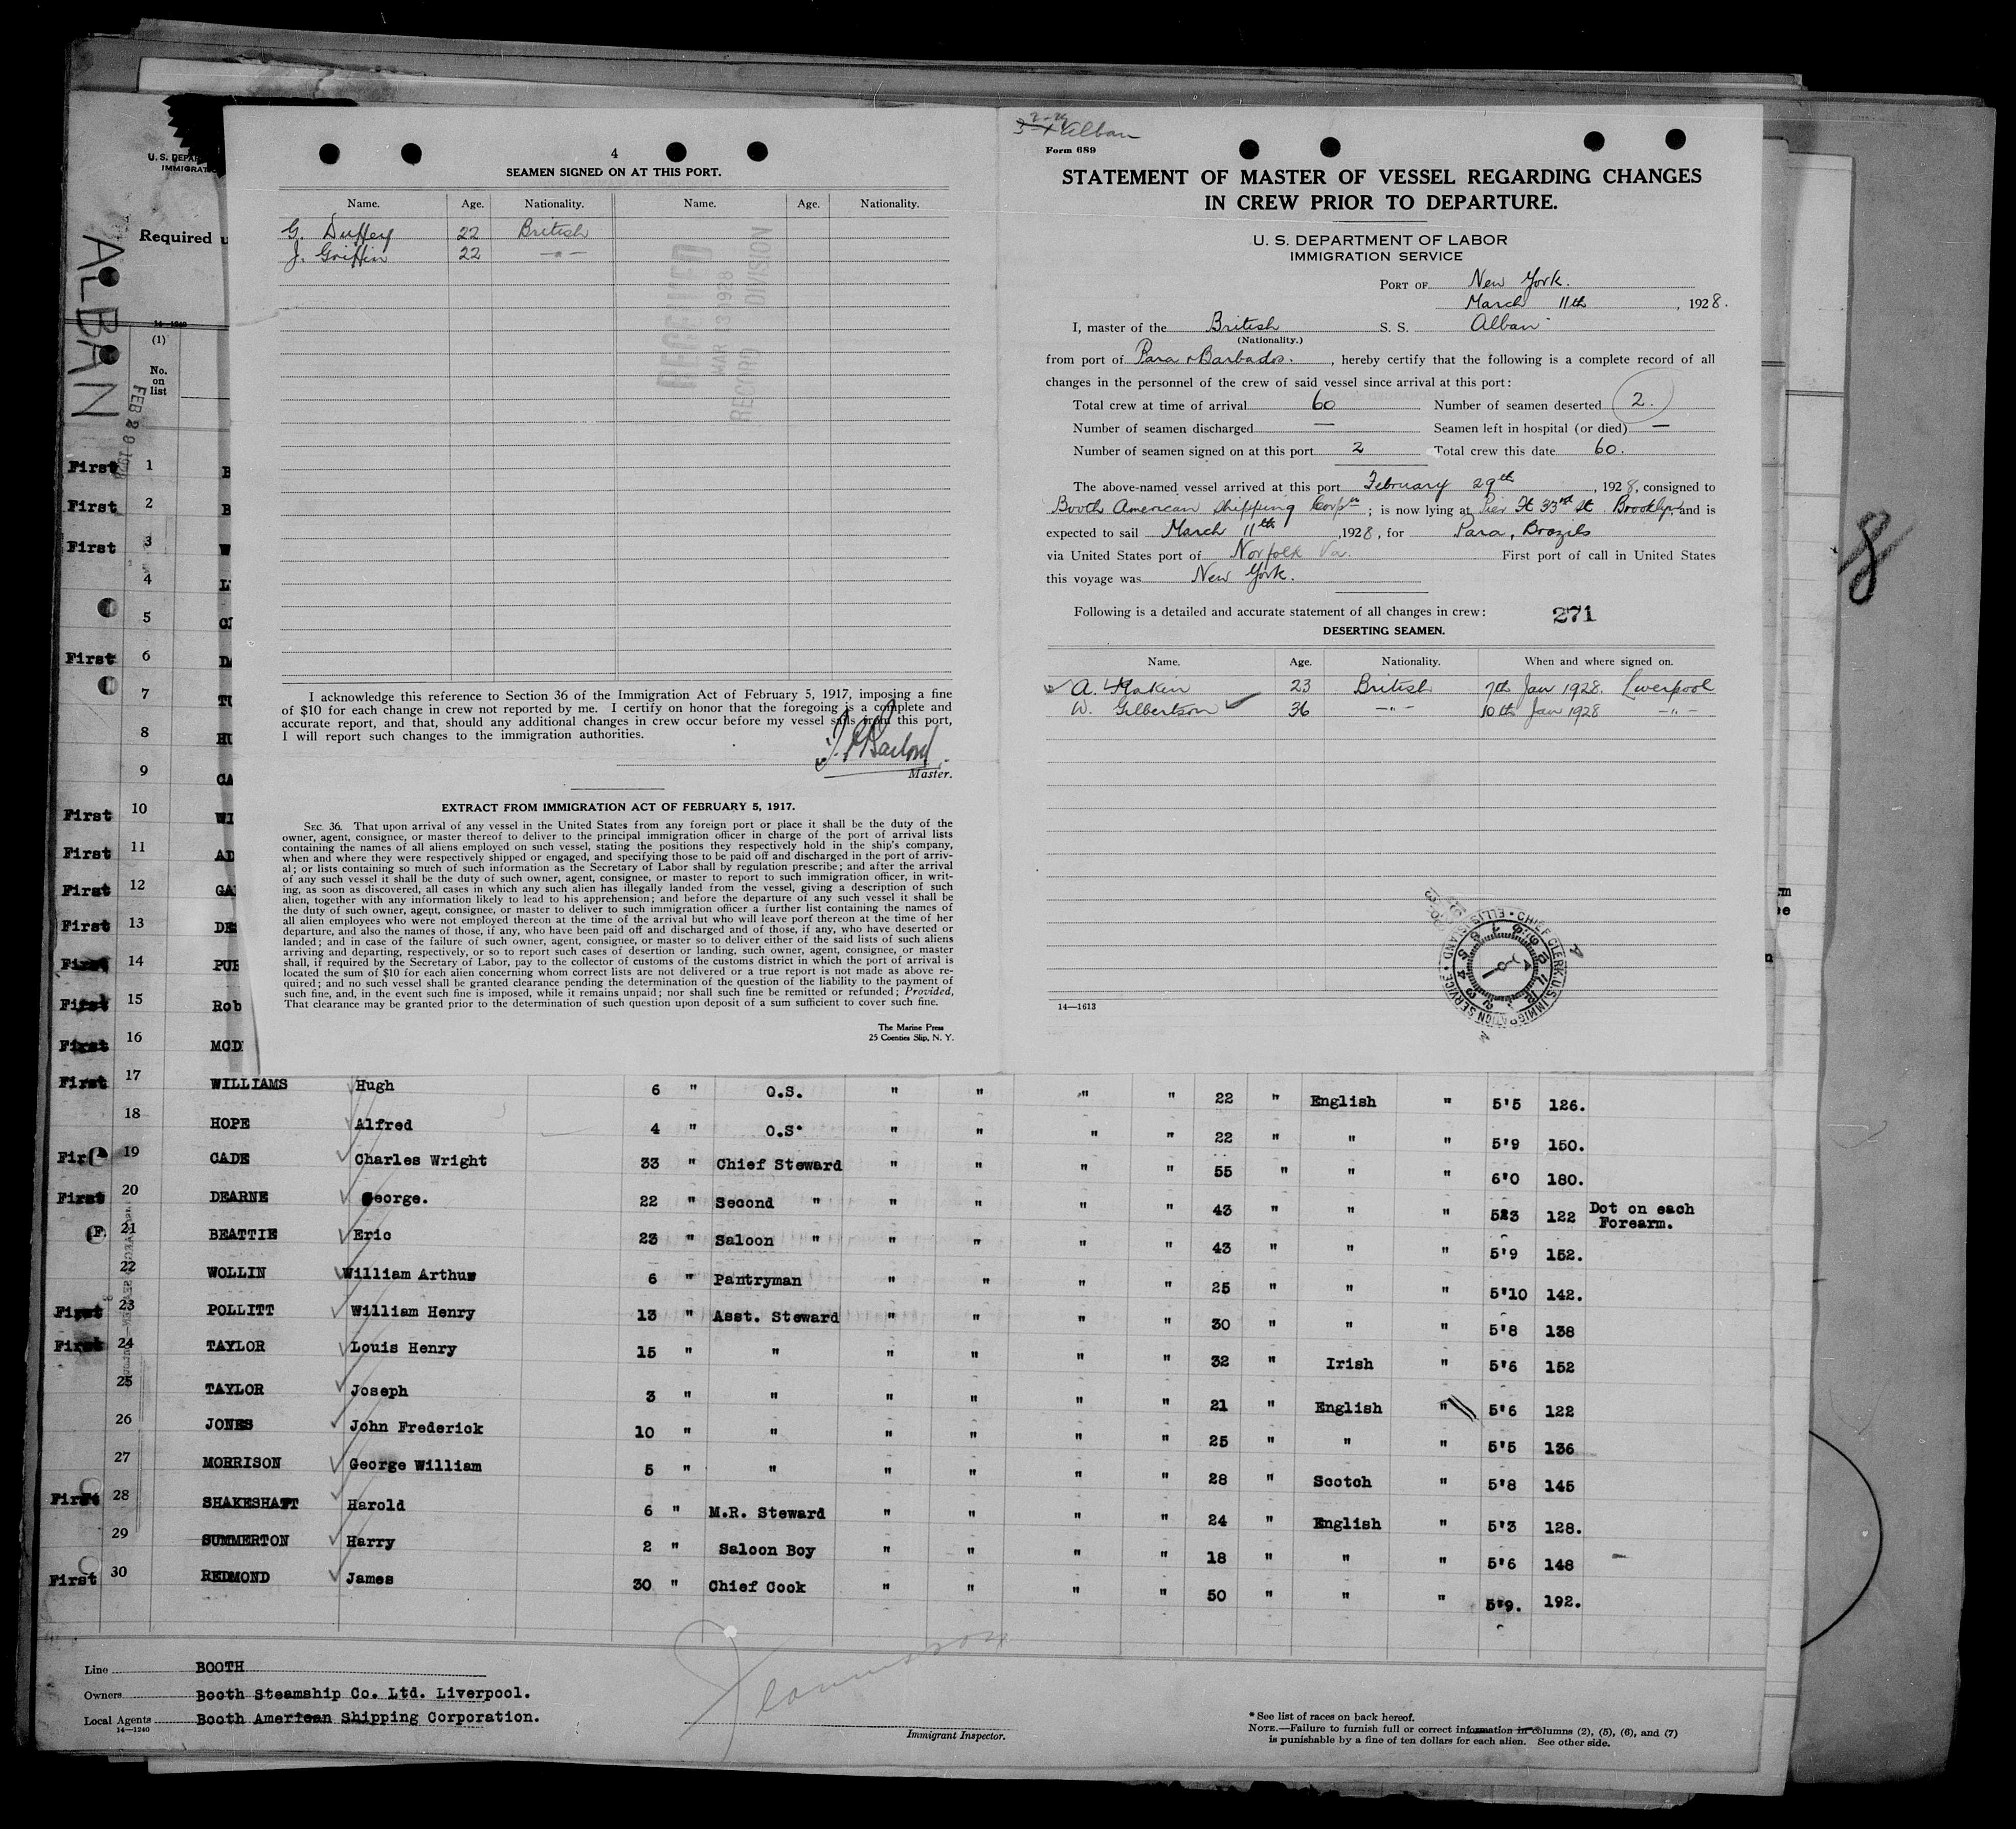 U. S. DEPAR
IMMIGRAT
Required u
ALBAN
FEB 29 1928
14—1240
(1)
No.
on
list
4
SEAMEN SIGNED ON AT THIS PORT.
Name. Age. Nationality. Name. Age. Nationality.
G. Duffey 22 British
J. Griffin 22 —"—
RECEIVED
MAR 13 1928
RECORD DIVISION
I acknowledge this reference to Section 36 of the Immigration Act of February 5, 1917, imposing a fine
of $10 for each change in crew not reported by me. I certify on honor that the foregoing is a complete and
accurate report, and that, should any additional changes in crew occur before my vessel sails from this port,
I will report such changes to the immigration authorities.
Master.
EXTRACT FROM IMMIGRATION ACT OF FEBRUARY 5, 1917.
SEC. 36. That upon arrival of any vessel in the United States from any foreign port or place it shall be the duty of the
owner, agent, consignee, or master thereof to deliver to the principal immigration officer in charge of the port of arrival lists
containing the names of all aliens employed on such vessel, stating the positions they respectively hold in the ship's company,
when and where they were respectively shipped or engaged, and specifying those to be paid off and discharged in the port of arriv-
al; or lists containing so much of such information as the Secretary of Labor shall by regulation prescribe; and after the arrival
of any such vessel it shall be the duty of such owner, agent, consignee, or master to report to such immigration officer, in writ-
ing, as soon as discovered, all cases in which any such alien has illegally landed from the vessel, giving a description of such
alien, together with any information likely to lead to his apprehension; and before the departure of any such vessel it shall be
the duty of such owner, agent, consignee, or master to deliver to such immigration officer a further list containing the names of
all alien employees who were not employed thereon at the time of the arrival but who will leave port thereon at the time of her
departure, and also the names of those, if any, who have been paid off and discharged, and of those, if any, who have deserted or
landed; and in case of the failure of such owner, agent, consignee, or master so to deliver either of the said lists of such aliens
arriving and departing, respectively, or so to report such cases of desertion or landing, such owner, agent, consignee, or master
shall, if required by the Secretary of Labor, pay to the collector of customs of the customs district in which the port of arrival is
located the sum of $10 for each alien concerning whom correct lists are not delivered or a true report is not made as above re-
quired; and no such vessel shall be granted clearance pending the determination of the question of the liability to the payment of
such fine, and, in the event such fine is imposed, while it remains unpaid; nor shall such fine be remitted or refunded; Provided,
That clearance may be granted prior to the determination of such question upon deposit of a sum sufficient to cover such fine.
The Marine Press
25 Coenties Slip, N. Y.
2-29
Alban
Form 689
STATEMENT OF MASTER OF VESSEL REGARDING CHANGES
IN CREW PRIOR TO DEPARTURE.
U. S. DEPARTMENT OF LABOR
IMMIGRATION SERVICE
PORT OF New York.
March 11th, 1928.
I, master of the British S. S. Alban
(Nationality.)
from port of Para & Barbados., hereby certify that the following is a complete record of all
changes in the personnel of the crew of said vessel since arrival at this port:
Total crew at time of arrival 60 Number of seamen deserted 2.
Number of seamen discharged — Seamen left in hospital (or died) —
Number of seamen signed on at this port 2 Total crew this date 60.
The above-named vessel arrived at this port February 29th, 1928, consigned to
Booth American Shipping Corpn; is now lying at Pier Ft 33rd St. Brooklyn and is
expected to sail March 11th, 1928, for Para, Brazils
via United States port of Norfolk Va. First port of call in United States
this voyage was New York.
Following is a detailed and accurate statement of all changes in crew: 271
DESERTING SEAMEN.
Name. Age. Nationality. When and where signed on.
A. Makin 23 British 7th Jan 1928. Liverpool
W. Gilbertson 36 —"— 10th Jan 1928 —"—
CHIEF CLERK U.S. IMMIGRATION SERVICE • ELLIS ISLAND •
14—1613
8
First 1 B
First 2 B
First 3 W
4 L
5 C
First 6 D
7 TU
8 HU
9 CA
First 10 WI
First 11 AD
First 12 GA
First 13 DE
First 14 PUE
First 15 Rob
First 16 MCD
First 17 WILLIAMS Hugh 6 " O.S. " " " " 22 " English " 5'5 126.
18 HOPE Alfred 4 " O.S. " " " " 22 " " " 5'9 150.
First 19 CADE Charles Wright 33 " Chief Steward " " " " 55 " " " 6'0 180.
First 20 DEARNE George. 22 " Second " " " " " 43 " " " 5'3 122 Dot on each
Forearm.
21 BEATTIE Eric 23 " Saloon " " " " " 43 " " " 5'9 152.
22 WOLLIN William Arthur 6 " Pantryman " " " " 25 " " " 5'10 142.
First 23 POLLITT William Henry 13 " Asst. Steward " " " " 30 " " " 5'8 138
First 24 TAYLOR Louis Henry 15 " " " " " " 32 " Irish " 5'6 152
25 TAYLOR Joseph 3 " " " " " " 21 " English " 5'6 122
26 JONES John Frederick 10 " " " " " " 25 " " " 5'5 136
27 MORRISON George William 5 " " " " " " 28 " Scotch " 5'8 145
First 28 SHAKESHAFT Harold 6 " M.R. Steward " " " " 24 " English " 5'3 128.
29 SUMMERTON Harry 2 " Saloon Boy " " " " 18 " " " 5'6 148
First 30 REDMOND James 30 " Chief Cook " " " " 50 " " " 5'9. 192.
Line BOOTH
Owners Booth Steamship Co. Ltd. Liverpool.
Local Agents Booth American Shipping Corporation.
14—1240
Immigrant Inspector.
* See list of races on back hereof.
NOTE.—Failure to furnish full or correct information in columns (2), (5), (6), and (7)
is punishable by a fine of ten dollars for each alien. See other side.